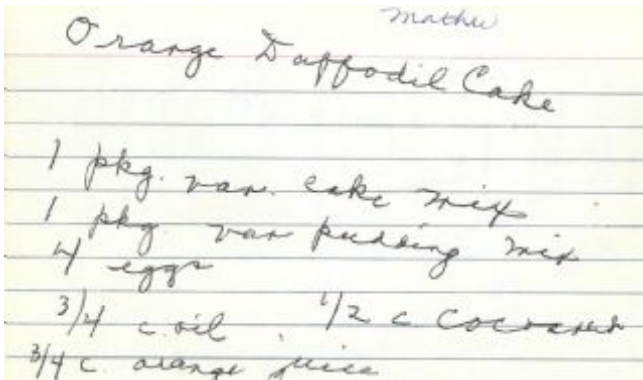 Mathew
Orange Daffodil Cake
1 pkg. van. cake mix
1 pkg. van pudding mix
4 eggs
3/4 c. oil 1/2 c. coconut
3/4 c. orange juice